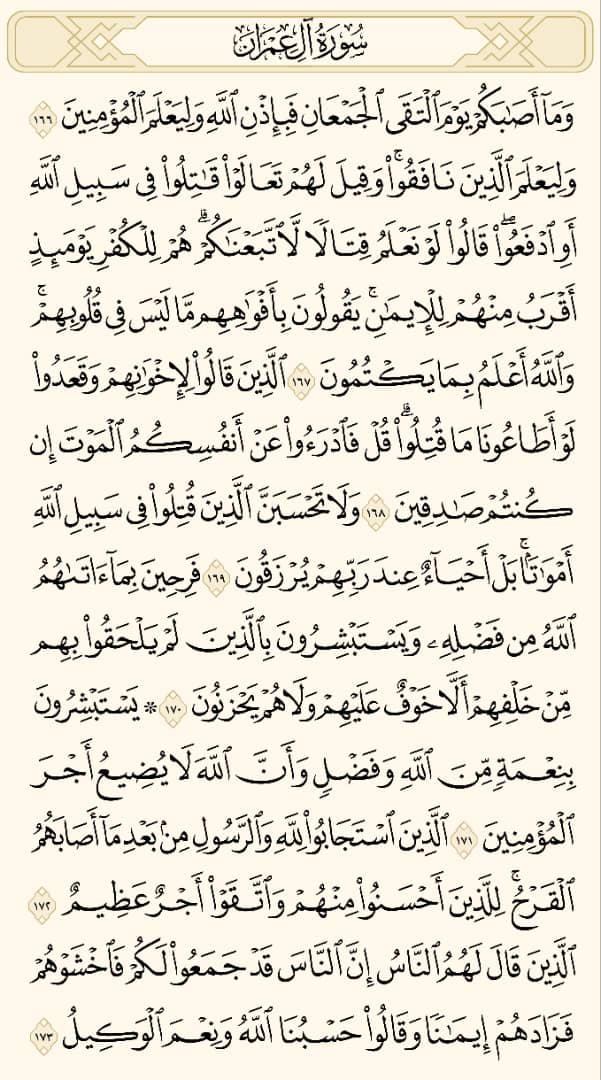 سُورَةُ آلِ عِمۡرَانَ
وَمَآ أَصَٰبَكُمۡ يَوۡمَ ٱلۡتَقَى ٱلۡجَمۡعَانِ فَبِإِذۡنِ ٱللَّهِ وَلِيَعۡلَمَ ٱلۡمُؤۡمِنِينَ ١٦٦
وَلِيَعۡلَمَ ٱلَّذِينَ نَافَقُواْۚ وَقِيلَ لَهُمۡ تَعَالَوۡاْ قَٰتِلُواْ فِي سَبِيلِ ٱللَّهِ
أَوِ ٱدۡفَعُواْۖ قَالُواْ لَوۡ نَعۡلَمُ قِتَالٗا لَّٱتَّبَعۡنَٰكُمۡۗ هُمۡ لِلۡكُفۡرِ يَوۡمَئِذٍ
أَقۡرَبُ مِنۡهُمۡ لِلۡإِيمَٰنِۚ يَقُولُونَ بِأَفۡوَٰهِهِم مَّا لَيۡسَ فِي قُلُوبِهِمۡۚ
وَٱللَّهُ أَعۡلَمُ بِمَا يَكۡتُمُونَ ١٦٧ ٱلَّذِينَ قَالُواْ لِإِخۡوَٰنِهِمۡ وَقَعَدُواْ
لَوۡ أَطَاعُونَا مَا قُتِلُواْۗ قُلۡ فَٱدۡرَءُواْ عَنۡ أَنفُسِكُمُ ٱلۡمَوۡتَ إِن
كُنتُمۡ صَٰدِقِينَ ١٦٨ وَلَا تَحۡسَبَنَّ ٱلَّذِينَ قُتِلُواْ فِي سَبِيلِ ٱللَّهِ
أَمۡوَٰتَۢاۚ بَلۡ أَحۡيَآءٌ عِندَ رَبِّهِمۡ يُرۡزَقُونَ ١٦٩ فَرِحِينَ بِمَآ ءَاتَىٰهُمُ
ٱللَّهُ مِن فَضۡلِهِۦ وَيَسۡتَبۡشِرُونَ بِٱلَّذِينَ لَمۡ يَلۡحَقُواْ بِهِم
مِّنۡ خَلۡفِهِمۡ أَلَّا خَوۡفٌ عَلَيۡهِمۡ وَلَا هُمۡ يَحۡزَنُونَ ١٧٠ ۞ يَسۡتَبۡشِرُونَ
بِنِعۡمَةٖ مِّنَ ٱللَّهِ وَفَضۡلٖ وَأَنَّ ٱللَّهَ لَا يُضِيعُ أَجۡرَ
ٱلۡمُؤۡمِنِينَ ١٧١ ٱلَّذِينَ ٱسۡتَجَابُواْ لِلَّهِ وَٱلرَّسُولِ مِنۢ بَعۡدِ مَآ أَصَابَهُمُ
ٱلۡقَرۡحُۚ لِلَّذِينَ أَحۡسَنُواْ مِنۡهُمۡ وَٱتَّقَوۡاْ أَجۡرٌ عَظِيمٌ ١٧٢
ٱلَّذِينَ قَالَ لَهُمُ ٱلنَّاسُ إِنَّ ٱلنَّاسَ قَدۡ جَمَعُواْ لَكُمۡ فَٱخۡشَوۡهُمۡ
فَزَادَهُمۡ إِيمَٰنٗا وَقَالُواْ حَسۡبُنَا ٱللَّهُ وَنِعۡمَ ٱلۡوَكِيلُ ١٧٣